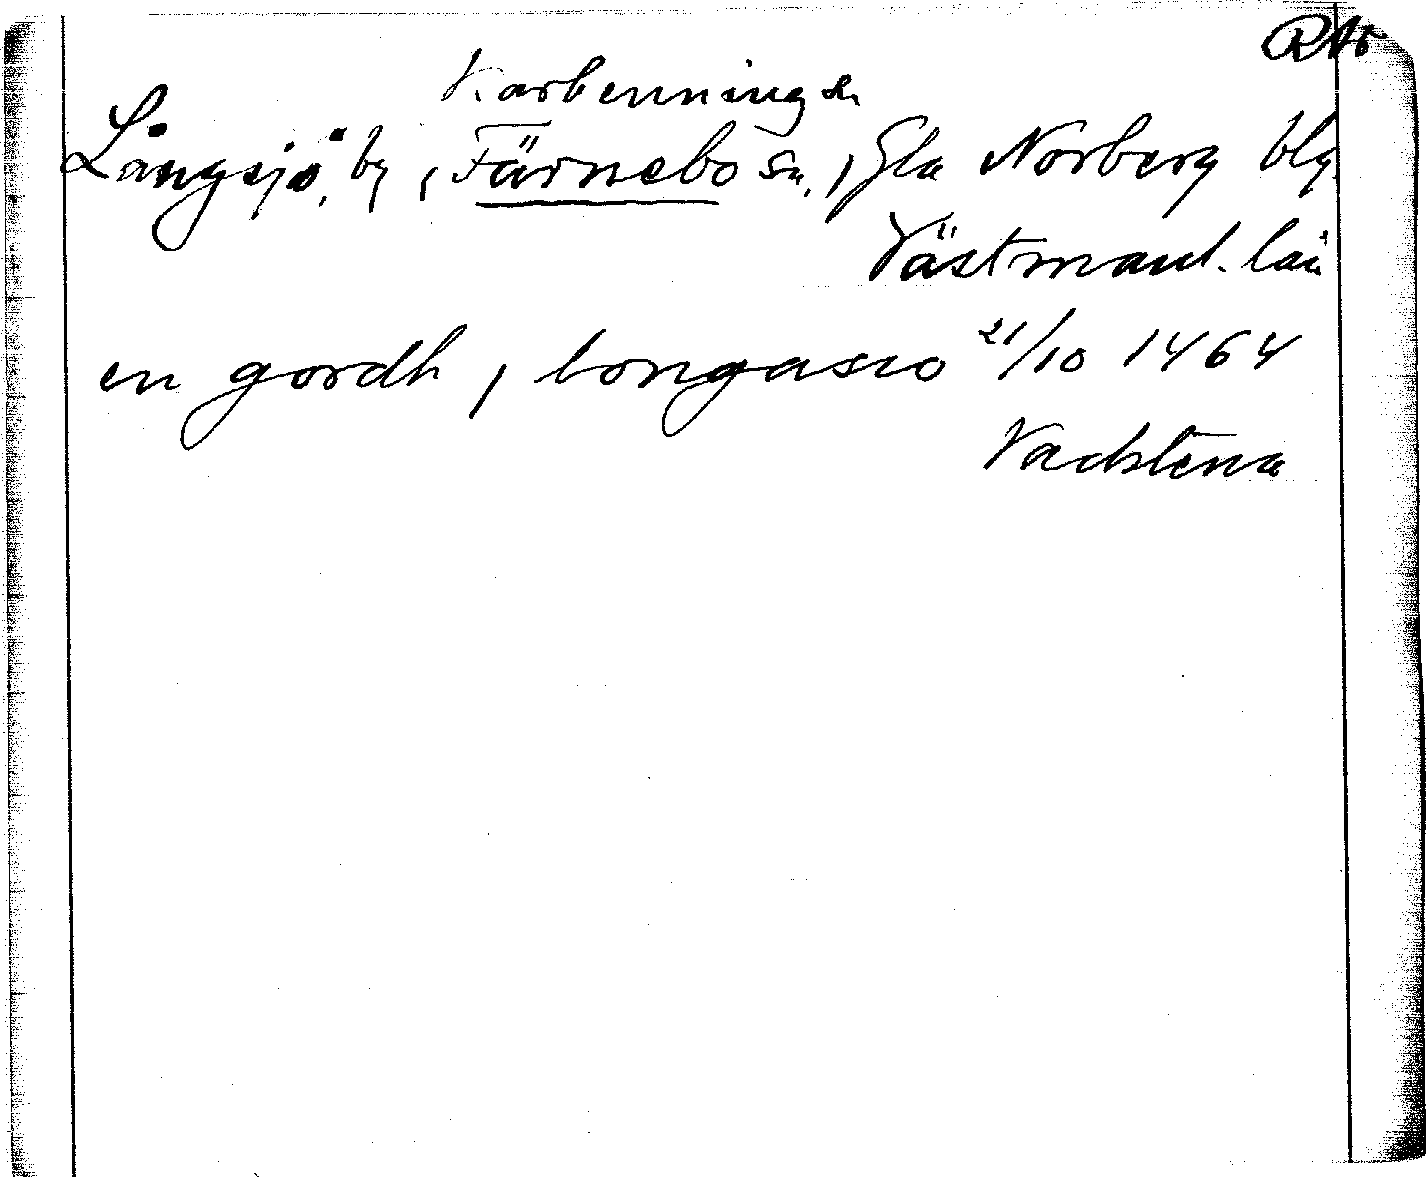 RAo
Karbenning sn
Långsjö, by, Färnebo sn, Gla Norberg blg.
Västmanl. län
en gordh, j longasio 21/10 1464
Vadstena